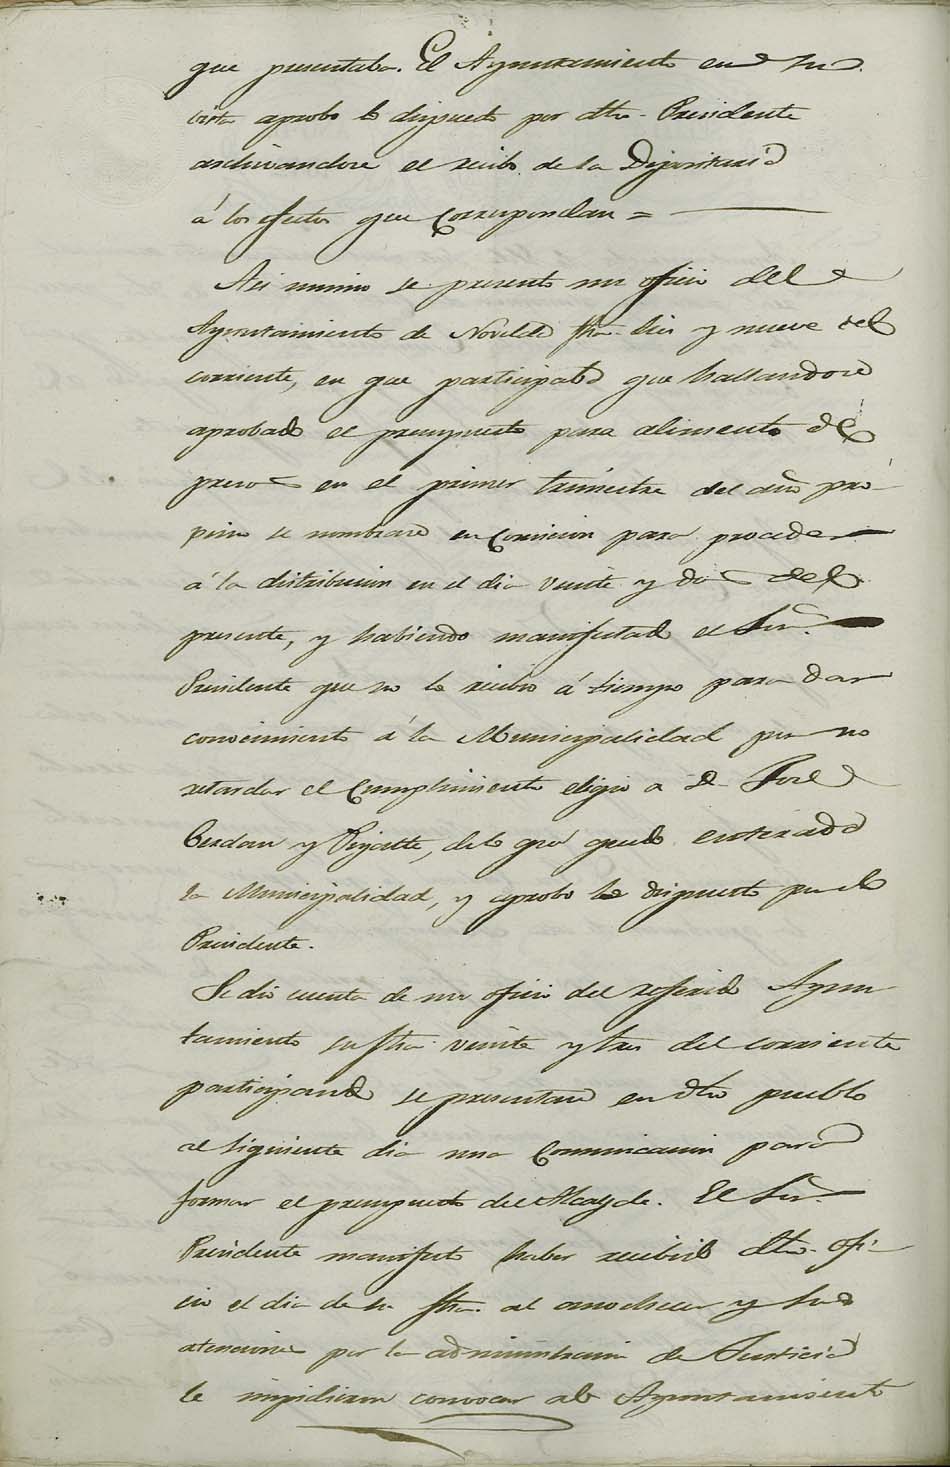 que presentaba. El Ayuntamiento en su
vista aprobo lo dispuesto por dho. Presidente
archivandose el recibo de la Depositaria
á los efectos que correspondan =
Asi mismo se presentó un oficio del
Ayuntamiento de Novelda fha. diez y nueve del
corriente, en que participaba que hallandose
aprobado el presupuesto para alimento de
presos en el primer trimestre del año pro-
pimo se nombrase en comision para proceder
á la distribucion en el dia veinte y dos del
presente, y habiendo manifestado el Sor.
Presidente que no lo recibio á tiempo para dar
conocimiento á la Municipalidad por no
retardar el cumplimiento eligio a Dn. José
Cerdan y, de lo que quedo enterada
la Municipalidad, y aprobo lo dispuesto por el
Presidente.
Se dio cuenta de un oficio del referido Ayun-
tamiento su fha. veinte y tres del corriente
participando se presentase en dho. pueblo
al siguiente dia una comunicacion para
formar el presupuesto del Alcayde. El Sor.
Presidente manifesto haber recibido dho. ofi-
cio el dia de su fha. al anochecer y sus
atenciones por la administracion de Justicia
le impidieron convocar al Ayuntamiento